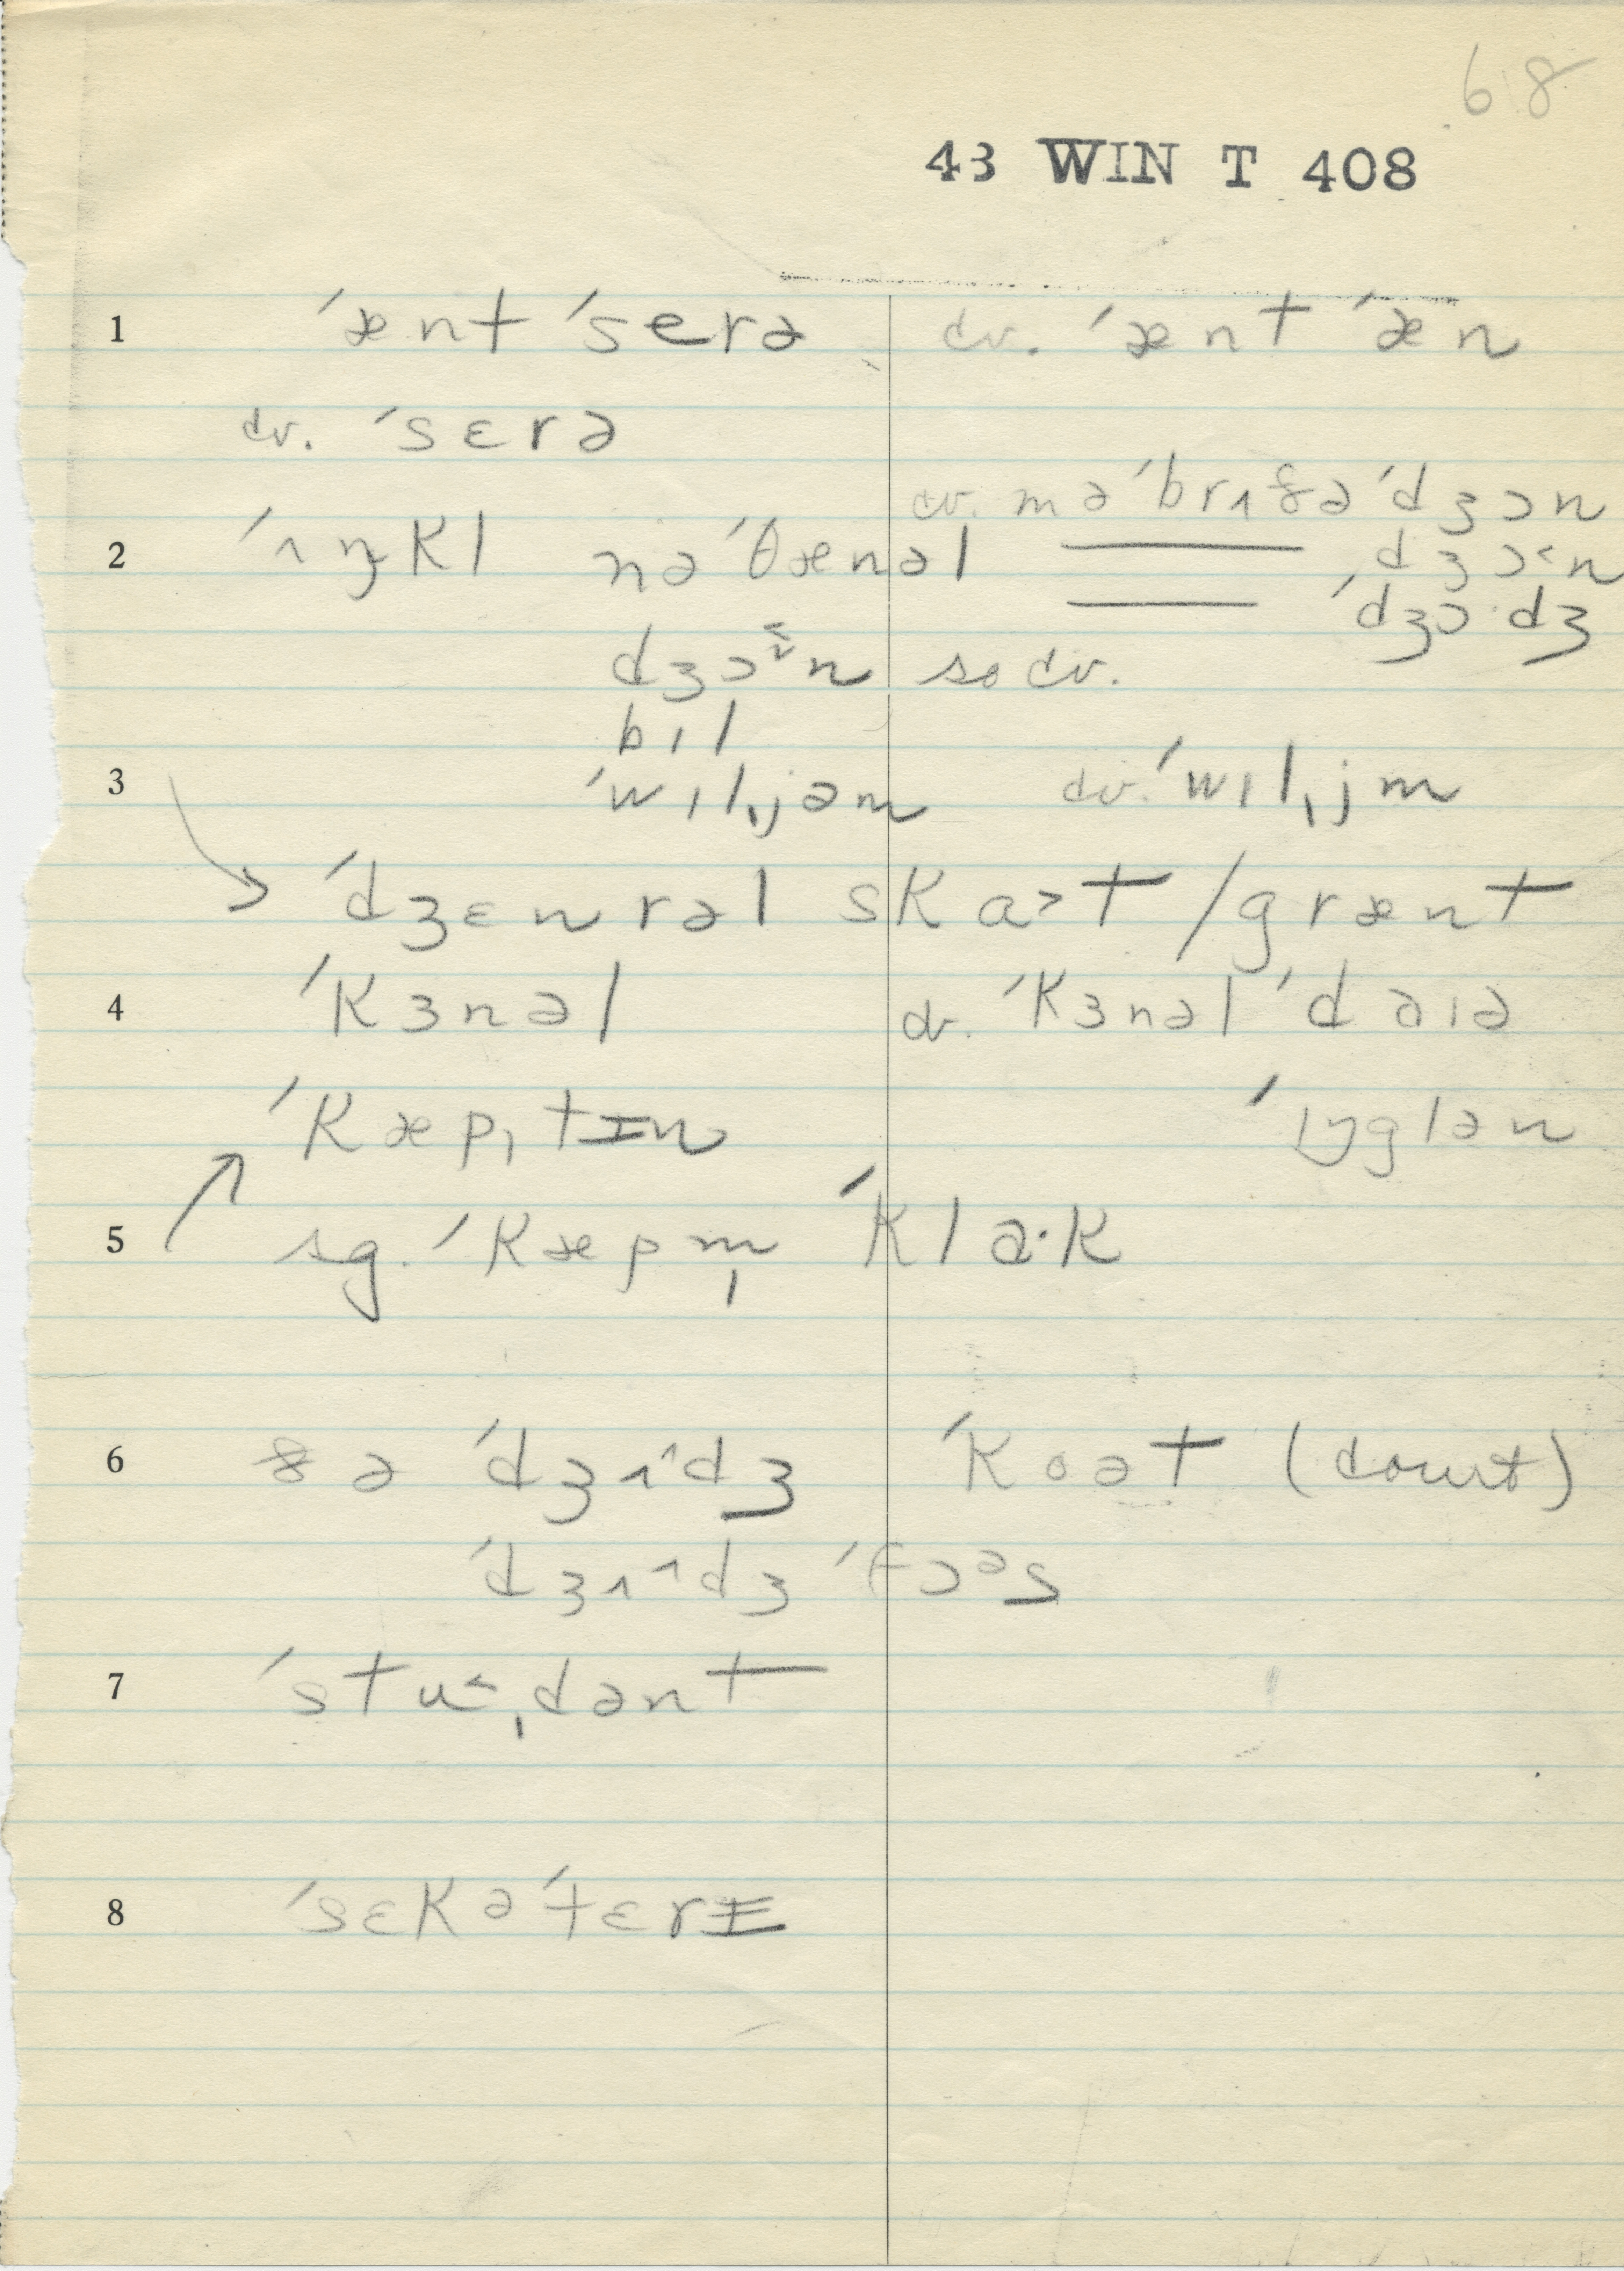 68
43 WIN T 408
1 ˈænt ˈserə cv. ˈænt ˈæn
cv. ˈsɛrə
cv. mə ˈbrʌðə ˈdʒɔn
2 ˈʌŋkl nəˈθænəl —— dʒɔ˂n
—— ˈdʒɔ·dʒ
dʒɔn so cv.
bıl
3 ˈwılˌjəm cv. ˈwılˌjm
ˈdʒɛnrəl skɑ˃t / grænt
4 ˈkɜnəl cv. ˈkɜnəl ˈdaıə
ˈkæpˌtɪn ˈıŋglən
5 sg. ˈkæpm̩ ˈkla·k
6 ðə ˈdʒʌ^dʒ ˈkoət (court)
ˈdʒʌ^dʒ ˈfɔəs
7 ˈstu˂ˌdənt
8 ˈsɛkəˈtɛrɪ